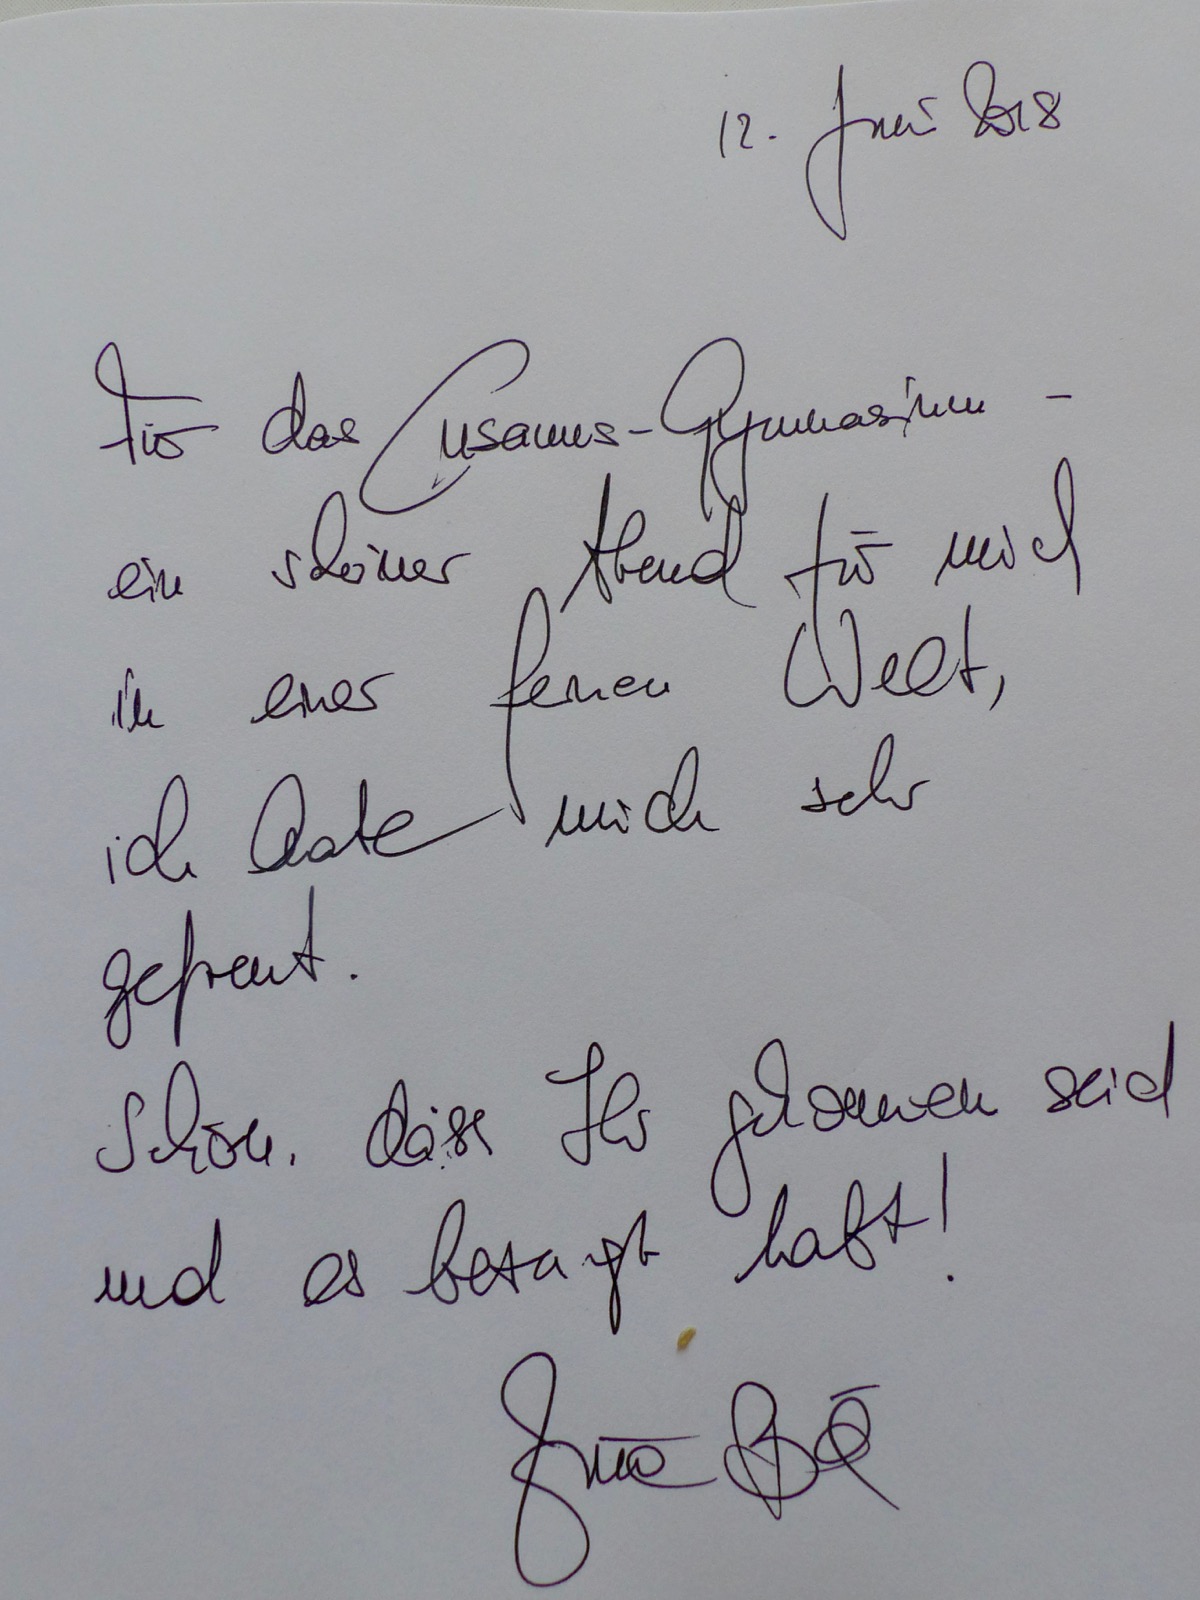 12. Juni 2018
Für das Cusanus-Gymnasium -
ein schöner Abend für mich
in einer fernen Welt,
ich habe mich sehr
gefreut.
Schön, dass Ihr gekommen seid
und es gesagt habt!